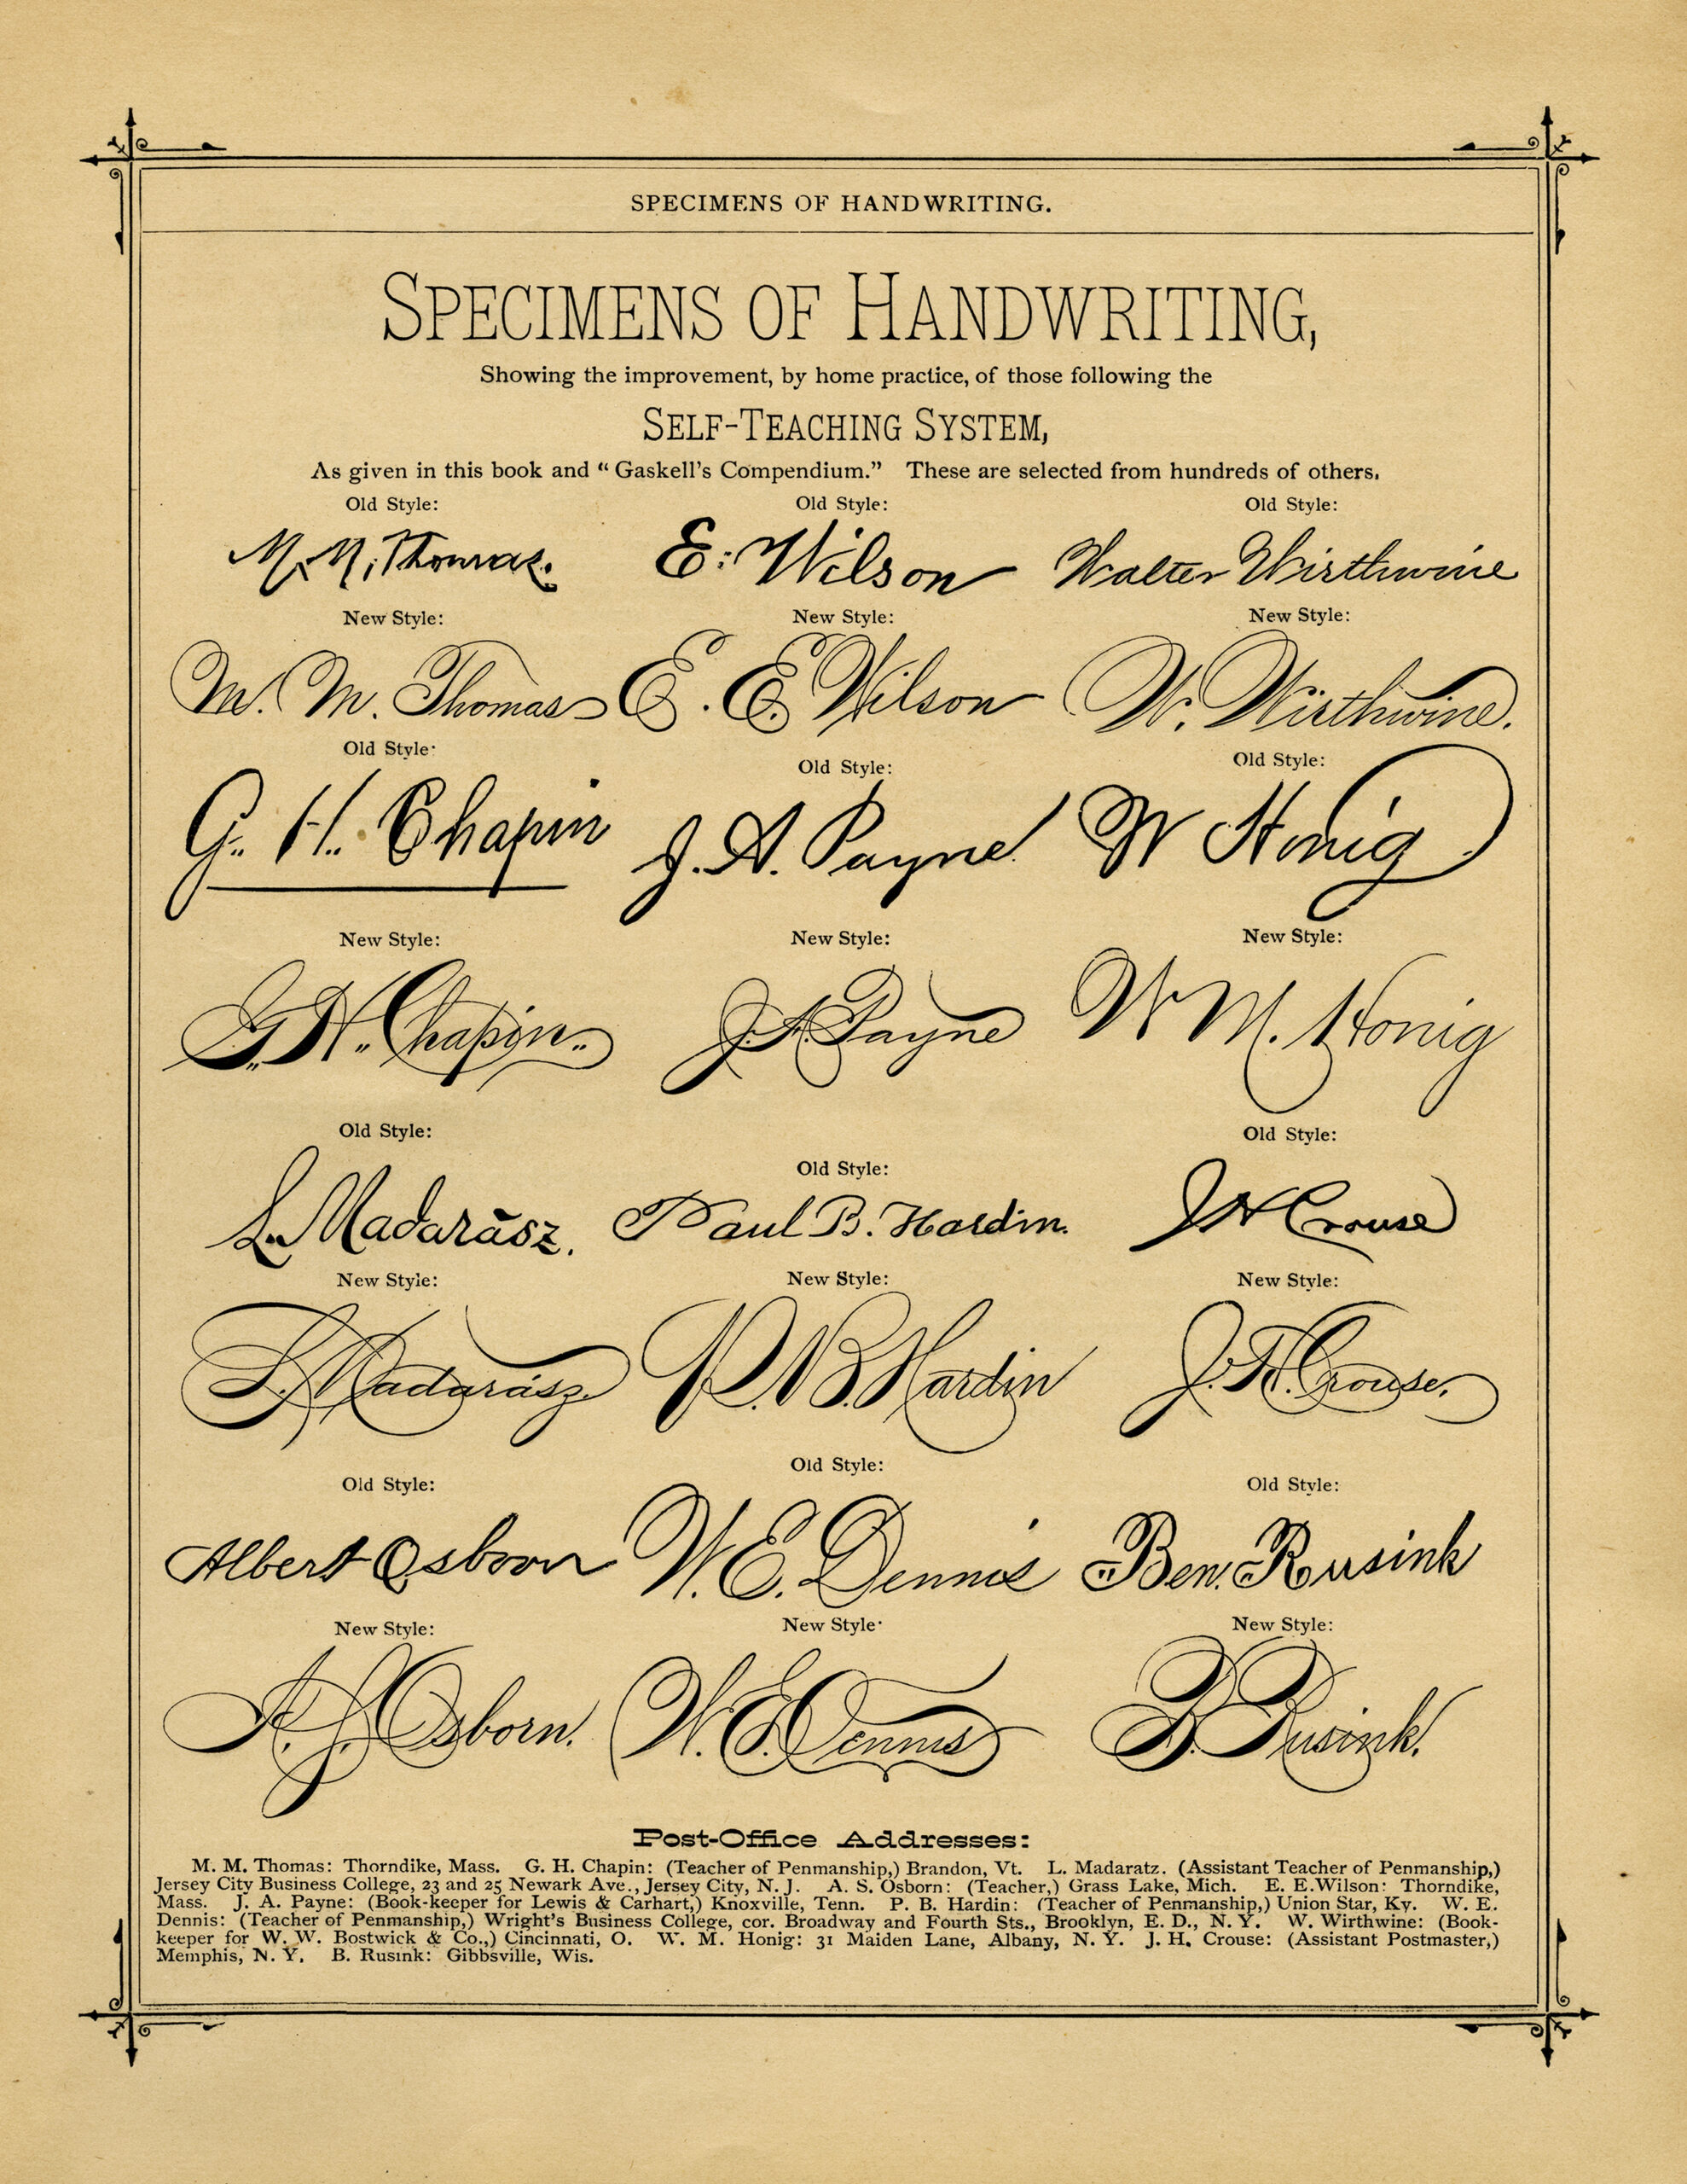 SPECIMENS OF HANDWRITING.
SPECIMENS OF HANDWRITING,
Showing the improvement, by home practice, of those following the
SELF-TEACHING SYSTEM,
As given in this book and “Gaskell’s Compendium.” These are selected from hundreds of others.
Old Style: Old Style: Old Style:
M. M. Thomas. E. Wilson Walter Wirthwine
New Style: New Style: New Style:
M. M. Thomas E. E. Wilson W. Wirthwine.
Old Style: Old Style: Old Style:
G. H. Chapin J. A. Payne. W Honig
New Style: New Style: New Style:
G. H. Chapin. J. A. Payne W M. Honig
Old Style: Old Style: Old Style:
L. Madarász. Paul B. Hardin. J H Crouse
New Style: New Style: New Style:
L. Madarász. P. B. Hardin J. H. Crouse.
Old Style: Old Style: Old Style:
Albert Osborn W. E. Dennis Ben. Rusink
New Style: New Style: New Style:
A. S. Osborn. W. E. Dennis B. Rusink.
Post-Office Addresses:
M. M. Thomas: Thorndike, Mass. G. H. Chapin: (Teacher of Penmanship,) Brandon, Vt. L. Madaratz. (Assistant Teacher of Penmanship,)
Jersey City Business College, 23 and 25 Newark Ave., Jersey City, N. J. A. S. Osborn: (Teacher,) Grass Lake, Mich. E. E. Wilson: Thorndike,
Mass. J. A. Payne: (Book-keeper for Lewis & Carhart,) Knoxville, Tenn. P. B. Hardin: (Teacher of Penmanship,) Union Star, Ky. W. E.
Dennis: (Teacher of Penmanship,) Wright’s Business College, cor. Broadway and Fourth Sts., Brooklyn, E. D., N. Y. W. Wirthwine: (Book-
keeper for W. W. Bostwick & Co.,) Cincinnati, O. W. M. Honig: 31 Maiden Lane, Albany, N. Y. J. H. Crouse: (Assistant Postmaster,)
Memphis, N. Y. B. Rusink: Gibbsville, Wis.